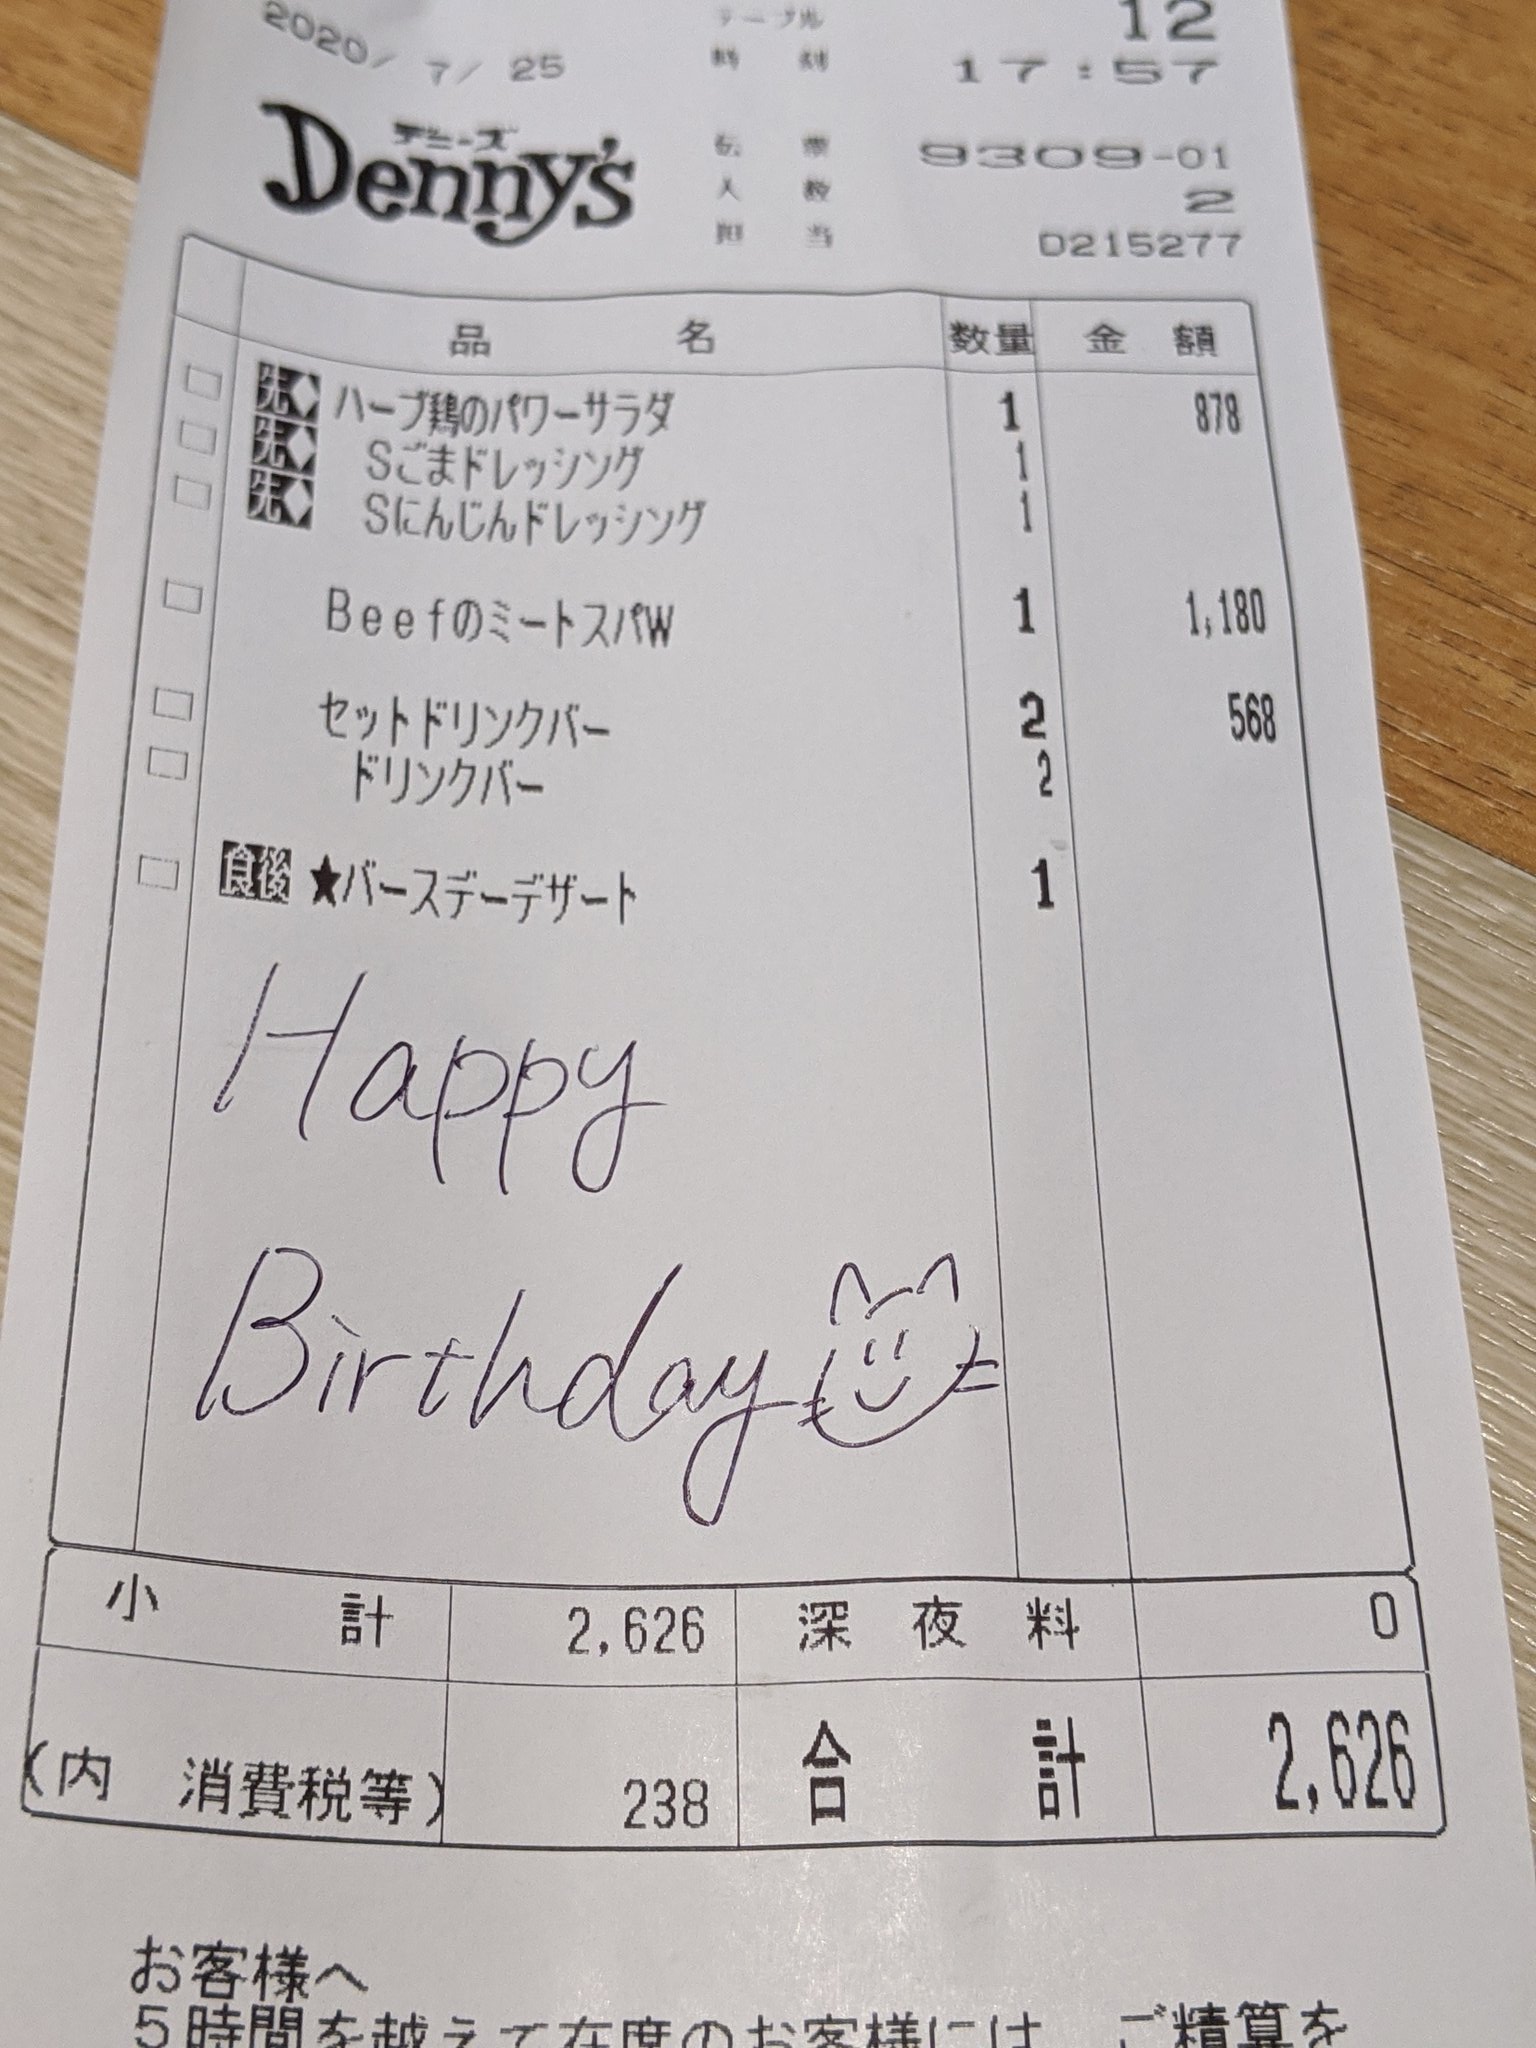 2020/ 7/ 25
テーブル 12
時刻 17:57
デニーズ
Denny's
伝票 9309-01
人数 2
担当 D215277
品名 数量 金額
先 ハーブ鶏のパワーサラダ 1 878
先 Sごまドレッシング 1
先 Sにんじんドレッシング 1
BeefのミートスパW 1 1,180
セットドリンクバー 2 568
ドリンクバー 2
食後 ★バースデーデザート 1
Happy
Birthday
小計 2,626 深夜料 0
(内 消費税等) 238 合計 2,626
お客様へ
5時間を越えて在席のお客様には、ご精算を